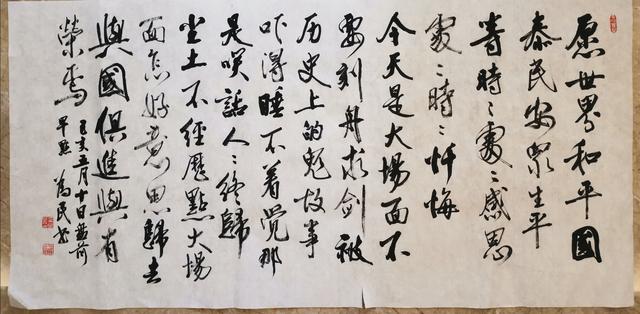 愿世界和平國
泰民安眾生平
等時〻處〻感恩
處〻時〻忏悔
今天是大場面不
要刻舟求剑被
历史上的鬼故事
吓得睡不着觉那
是咲話人〻終歸
尘土不经歷點大場
面怎好意思歸去
與國俱進與有
榮焉
己亥五月十日
早點 為民书